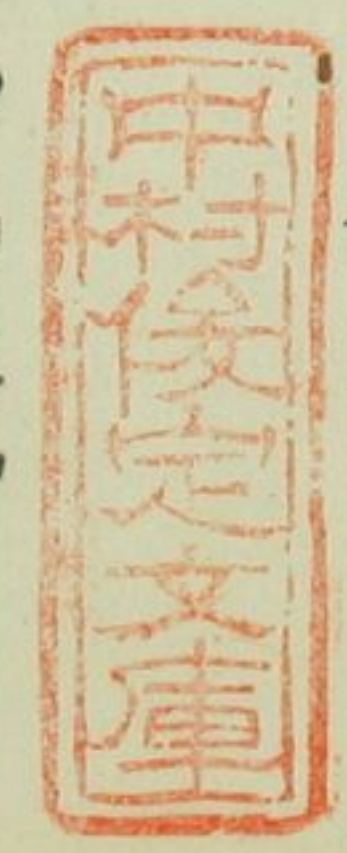 中村俊定文庫